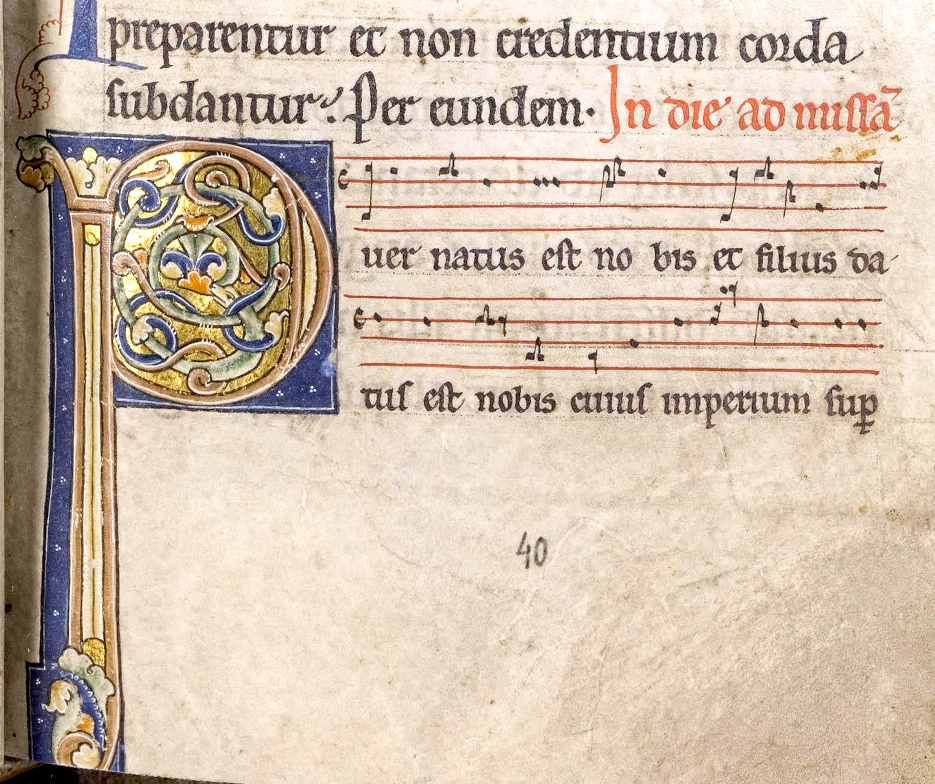 preparentur et non credentium corda
subdantur. Per eundem. In die ad missā
Puer natus est no bis et filius da-
tus est nobis cuius imperium sup
40